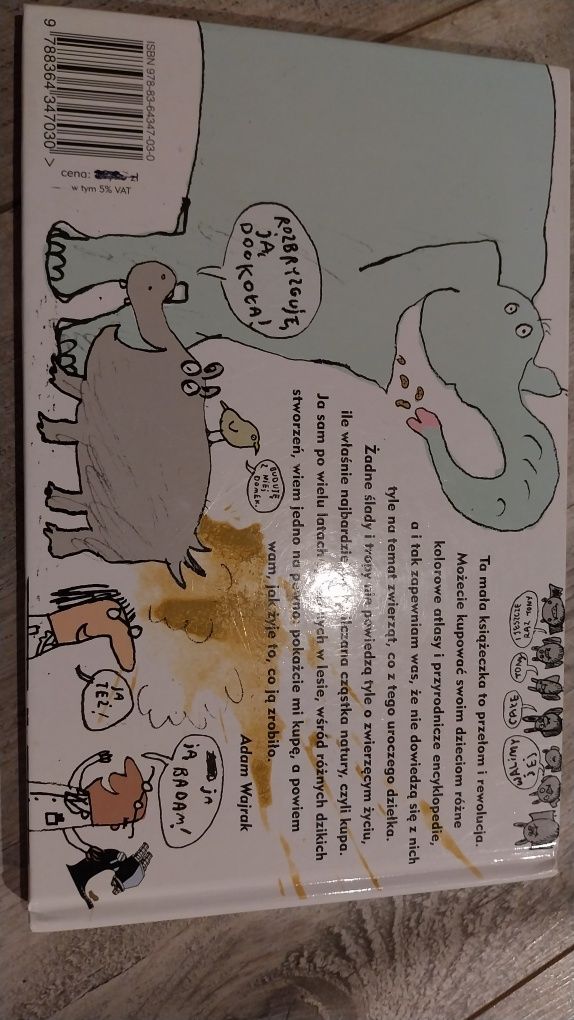 I JESZCZE
RAZ TONY
TONY
CAŁE
WALIMY
Ta mała książeczka to przełom i rewolucja.
Możecie kupować swoim dzieciom różne
kolorowe atlasy i przyrodnicze encyklopedie,
a i tak zapewniam was, że nie dowiedzą się z nich
tyle na temat zwierząt, co z tego uroczego dziełka.
Żadne ślady i tropy nie powiedzą tyle o zwierzęcym życiu,
ile właśnie cząstka natury, czyli kupa.
Ja sam po wielu latach w lesie, wśród różnych dzikich
stworzeń, wiem jedno na pewno: pokażcie mi kupę, a powiem
wam, jak żyje to, co ją zrobiło.
Adam Wajrak
ROZBRYZGUJĘ
JĄ
DOOKOŁA!
BUDUJĘ
Z NIEJ
DOMEK.
JA
TEŻ!
JA
JĄ BADAM!
ISBN 978-83-64347-03-0
9 788364 347030 >
cena: zł
w tym 5% VAT